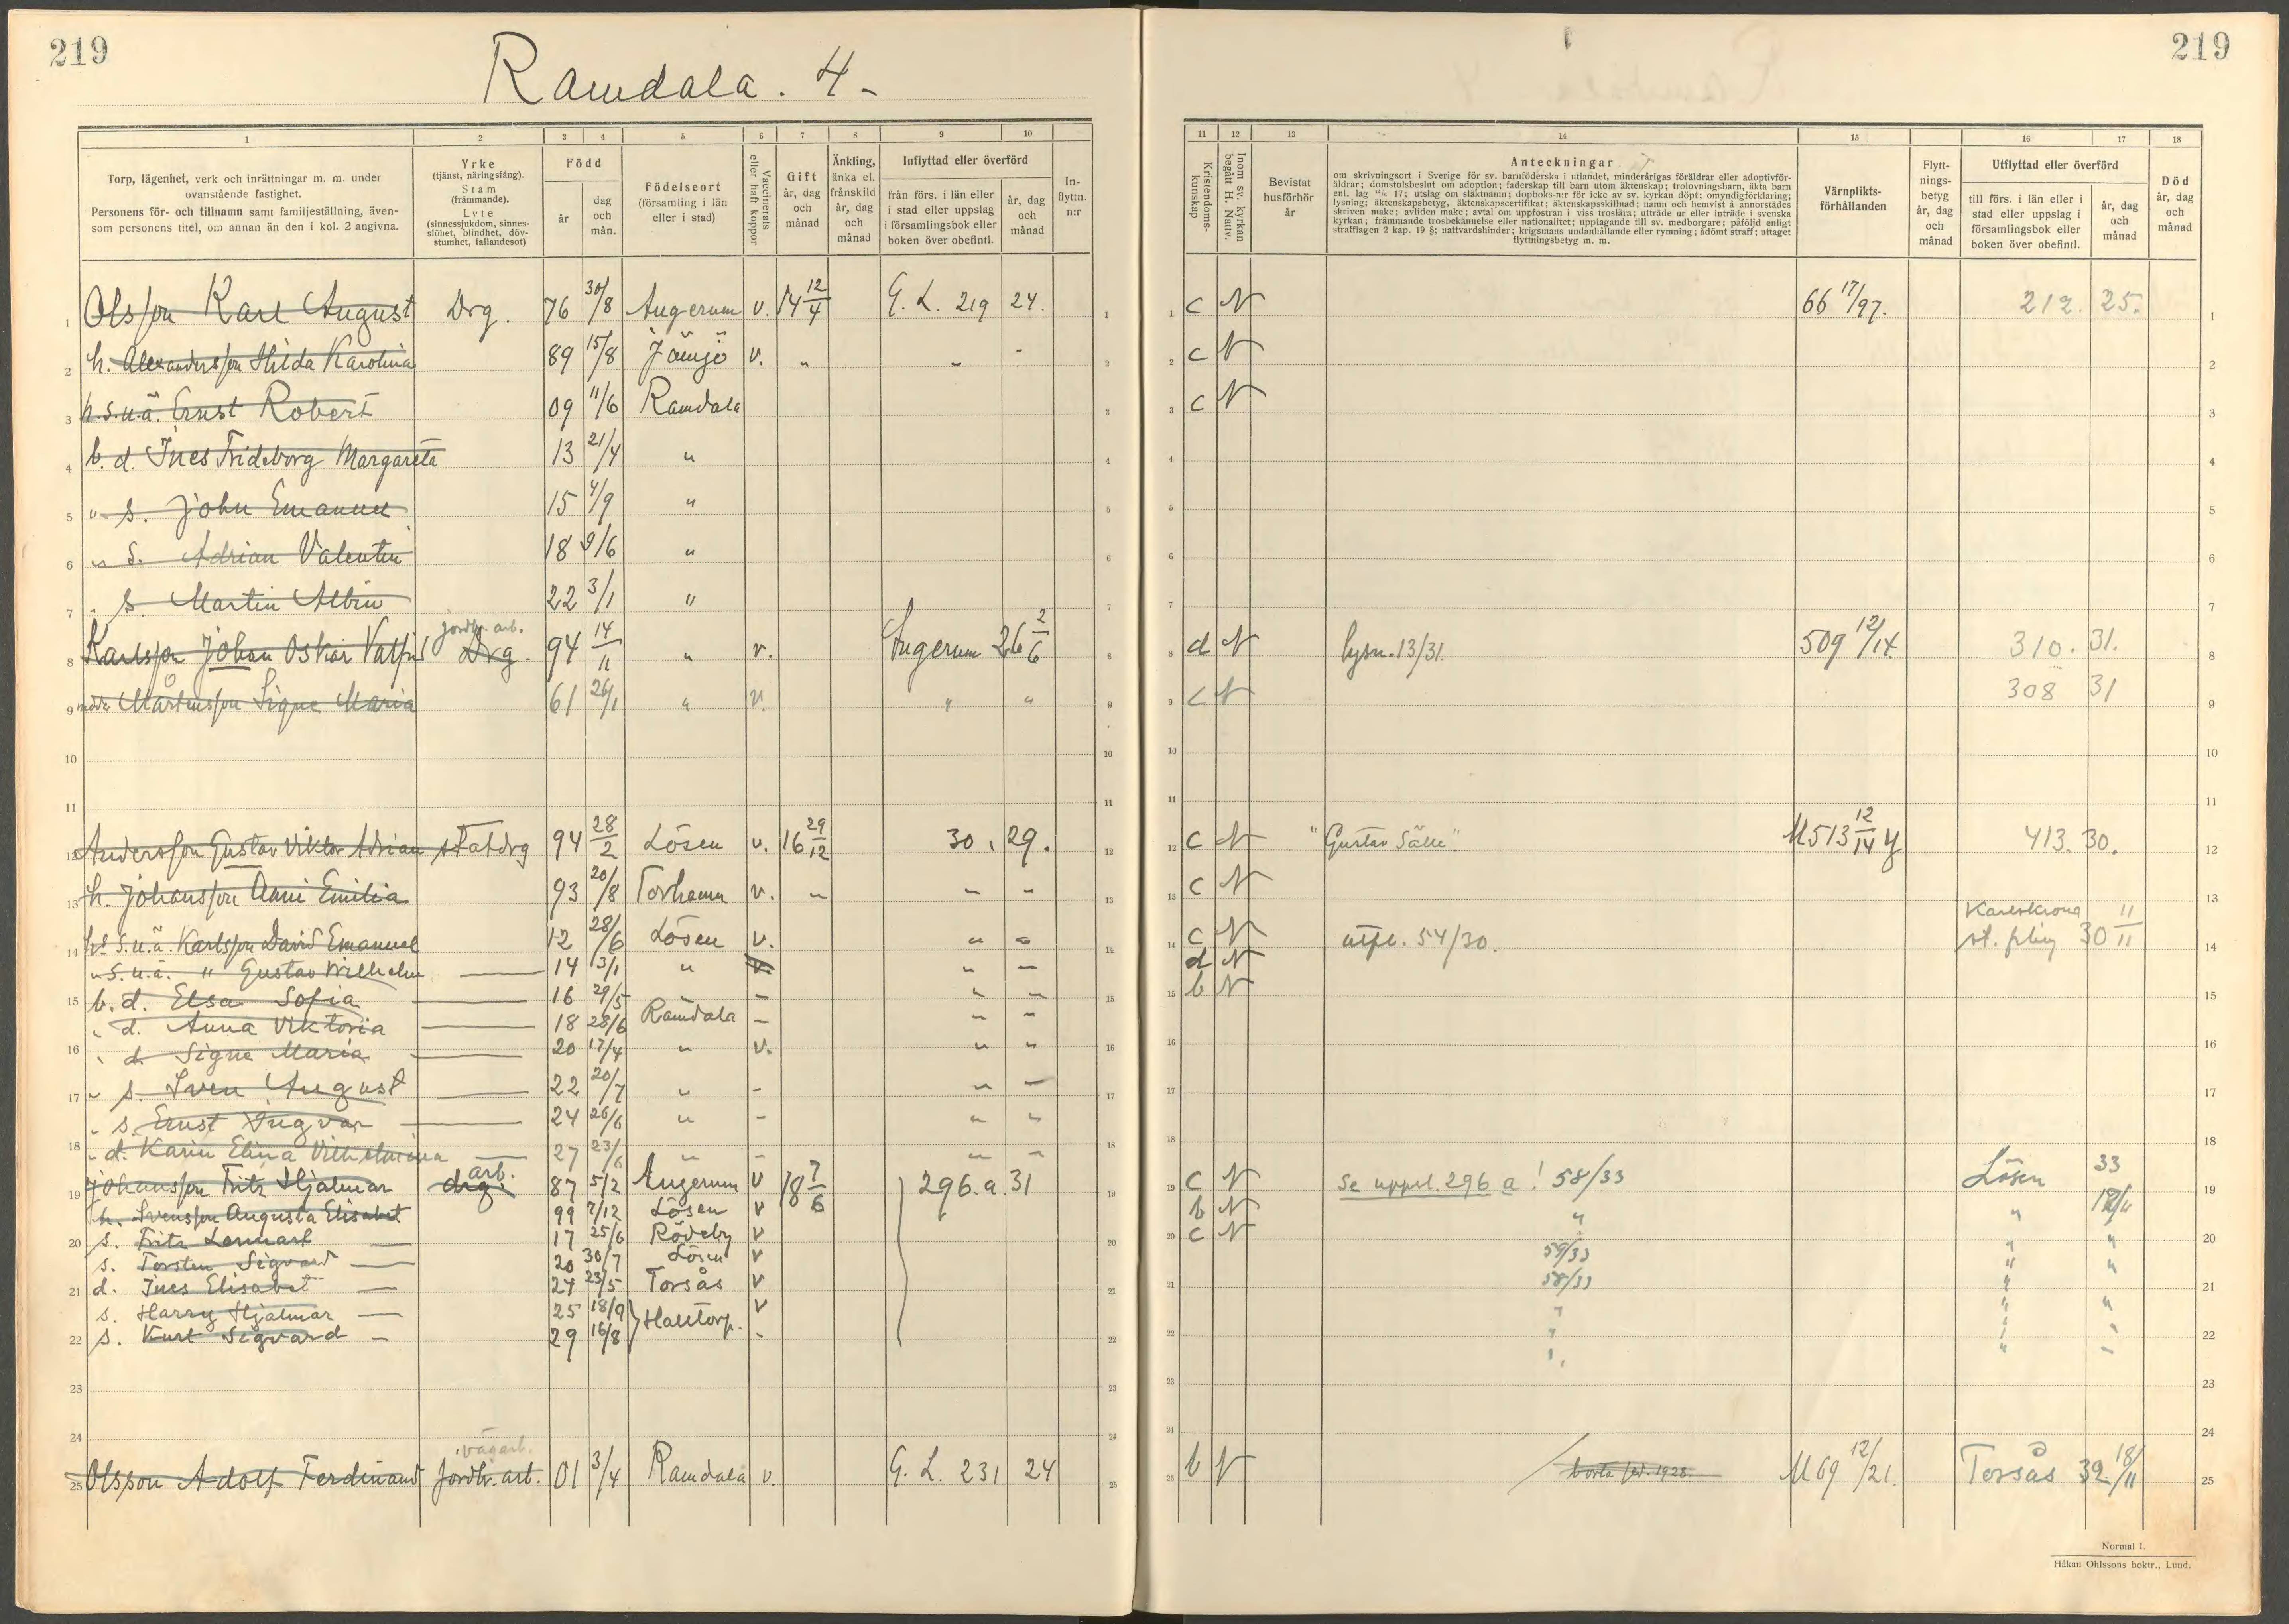 219
219
Ramdala. 4-
1 2 3 4 5 6 7 8 9 10
Torp, lägenhet, verk och inrättningar m. m. under
ovanstående fastighet.
Personens för- och tillnamn samt familjeställning, även-
som personens titel, om annan än den i kol. 2 angivna.
Yrke
(tjänst, näringsfång).
Stam
(främmande).
Lyte
(sinnessjukdom, sinnes-
slöhet, blindhet, döv-
stumhet, fallandesot)
Född
år
dag
och
mån.
Födelseort
(församling i län
eller i stad)
Vaccinerats
eller haft koppor
Gift
år, dag
och
månad
Änkling,
änka el.
frånskild
år, dag
och
månad
Inflyttad eller överförd
från förs. i län eller
i stad eller uppslag
i församlingsbok eller
boken över obefintl.
år, dag
och
månad
In-
flyttn.
n:r
11 12 13 14 15 16 17 18
Kristendoms-
kunskap
Inom sv. kyrkan
begått H. Nattv.
Bevistat
husförhör
år
Anteckningar
om skrivningsort i Sverige för sv. barnföderska i utlandet, minderårigas föräldrar eller adoptivför-
äldrar; domstolsbeslut om adoption; faderskap till barn utom äktenskap; trolovningsbarn, äkta barn
enl. lag 14/6 17; utslag om släktnamn; dopboks-n:r för icke av sv. kyrkan döpt; omyndigförklaring;
lysning; äktenskapsbetyg, äktenskapscertifikat; äktenskapsskillnad; namn och hemvist å annorstädes
skriven make; avliden make; avtal om uppfostran i viss troslära; utträde ur eller inträde i svenska
kyrkan; främmande trosbekännelse eller nationalitet; upptagande till sv. medborgare; påföljd enligt
strafflagen 2 kap. 19 §; nattvardshinder; krigsmans undanhållande eller rymning; ådömt straff; uttaget
flyttningsbetyg m. m.
Värnplikts-
förhållanden
Flytt-
nings-
betyg
år, dag
och
månad
Utflyttad eller överförd
till förs. i län eller i
stad eller uppslag i
församlingsbok eller
boken över obefintl.
år, dag
och
månad
Död
år, dag
och
månad
1 Olsson Karl August Drg. 76 30/8 Augerum v. 14 12/4 G. L. 219 24. 1 c N 66 17/97. 212. 25. 1
2 h. Alexandersson Hilda Karolina 89 15/8 Jämjö v. " " " 2 c N 2
3 h.s.u.ä. Ernst Robert 09 11/6 Ramdala 3 c N 3
4 b. d. Ines Fridborg Margareta 13 21/4 " 4
5 " s. John Emanuel 15 4/9 " 5
6 " s. Adrian Valentin 18 9/6 " 6
7 " s. Martin Albin 22 3/1 " 7
jordbr. arb.
8 Karlsson Johan Oskar Valfrid Drg. 94 14/11 " v. Augerum 26 2/6 8 d N lysn. 13/31. 509 12/14. 310. 31. 8
9 moder Mårtensson Signe Maria 61 26/1 " v. " " 9 c N 308 31 9
10
11
12 Andersson Gustav Viktor Adrian statdrg 94 28/2 Lösen v. 16 29/12 30. 29. 12 c N "Gustav Sälle". M 513 12/14 y 413. 30. 12
13 h. Johansson Anni Emilia 93 20/8 Torhamn v. " " " 13 c N 13
14 hs s.u.ä. Karlsson David Emanuel 12 28/6 Lösen v. " " 14 c N utfl. 54/30. Karlskrona st. 30 11/11 14
" s.u.ä. " Gustav Wilhelm 14 13/1 " v. " " d N
15 b. d. Elsa Sofia 16 29/5 " - " " 15 b N 15
" d. Anna Viktoria 18 28/6 Ramdala - " "
16 " d. Signe Maria 20 17/4 " v. " " 16
17 " s. Sven August 22 20/7 " - " " 17
" s. Ernst Ingvar 24 26/6 " - " "
18 " d. Karin Elina Vilhelmina 27 23/6 " - " " 18
arb.
19 Johansson Fritz Hjalmar drg. 87 5/2 Augerum v 18 7/6 296.a 31 19 c N Se uppsl. 296 a! 58/33 Lösen 33 18/11 19
h. Svensson Augusta Elisabet 99 7/12 Lösen v b N " "
20 s. Fritz Lennart 17 25/6 Rödeby v 20 c N " " " 20
s. Torsten Sigvard 20 30/7 Lösen v 59/33 " "
21 d. Ines Elisabet 24 23/5 Torsås v 21 58/33 " " 21
s. Harry Hjalmar 25 18/9 Halltorp. v " " "
22 s. Kurt Sigvard 29 16/8 - 22 " " " 22
23
24
vägarb.
25 Olsson Adolf Ferdinand Jordbr. arb. 01 3/4 Ramdala v. G. L. 231 24 25 b N borta sed. 1928 M 69 12/21. Torsås 39. 18/11 25
Normal I.
Håkan Ohlssons boktr., Lund.